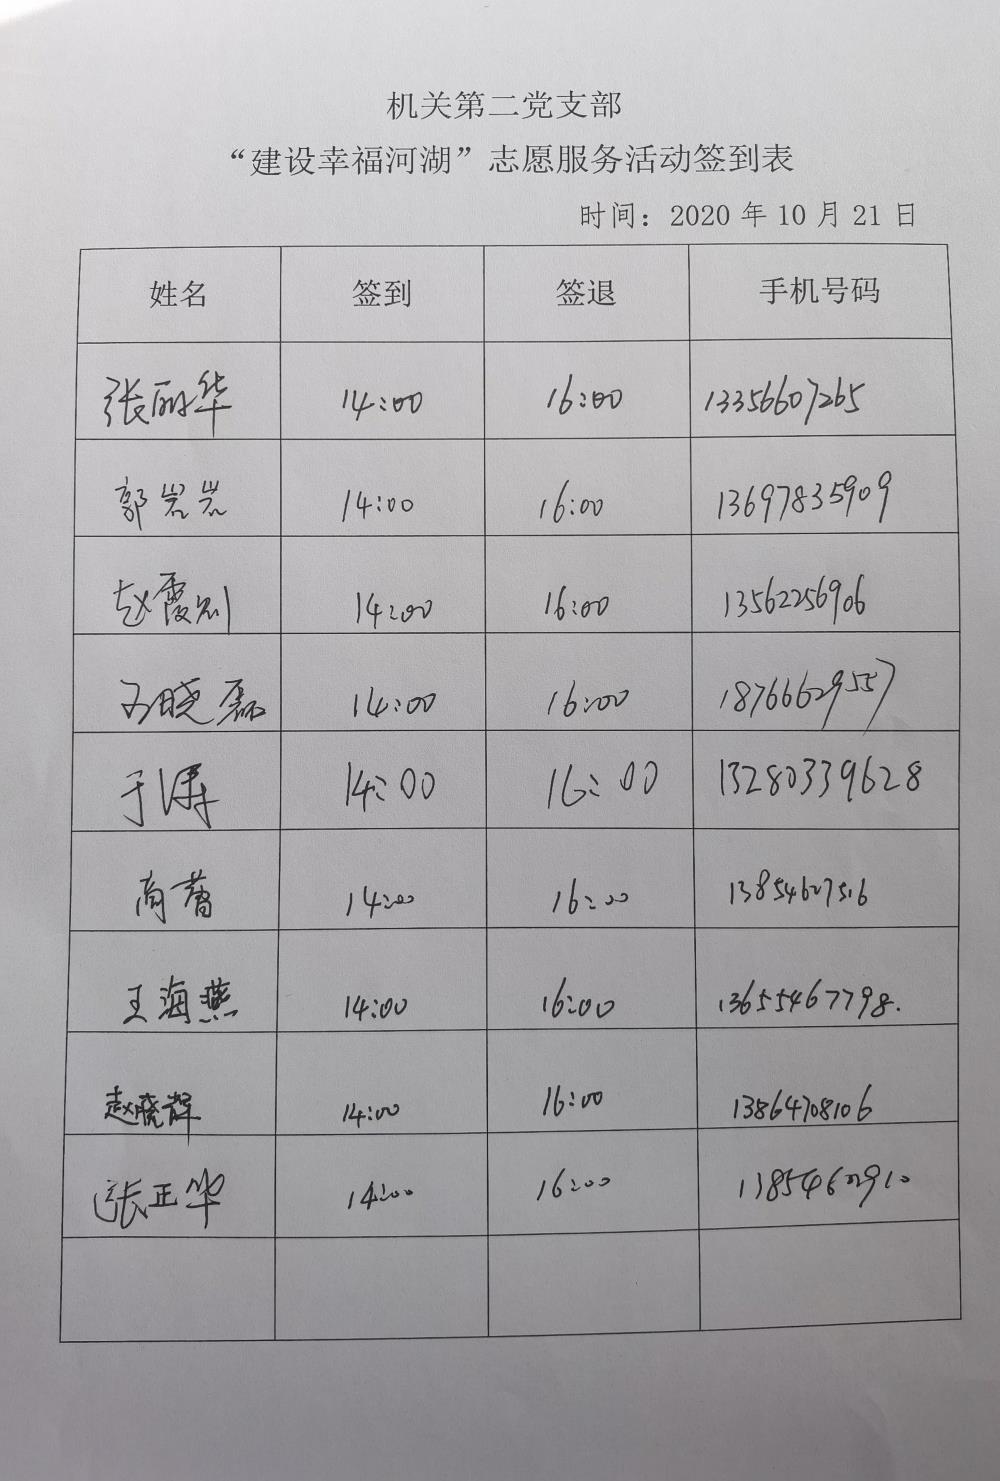 机关第二党支部
“建设幸福河湖”志愿服务活动签到表
时间：2020 年 10 月 21 日
姓名 签到 签退 手机号码
张丽华 14:00 16:00 13356607265
郭岩岩 14:00 16:00 13697835909
赵霞 14:00 16:00 13562256906
晓磊 14:00 16:00 18766629557
于涛 14:00 16:00 13280339628
商蕾 14:00 16:00 13854627516
王海燕 14:00 16:00 13655467798.
赵晓辉 14:00 16:00 13864708106
张正华 14:00 16:00 13854602910